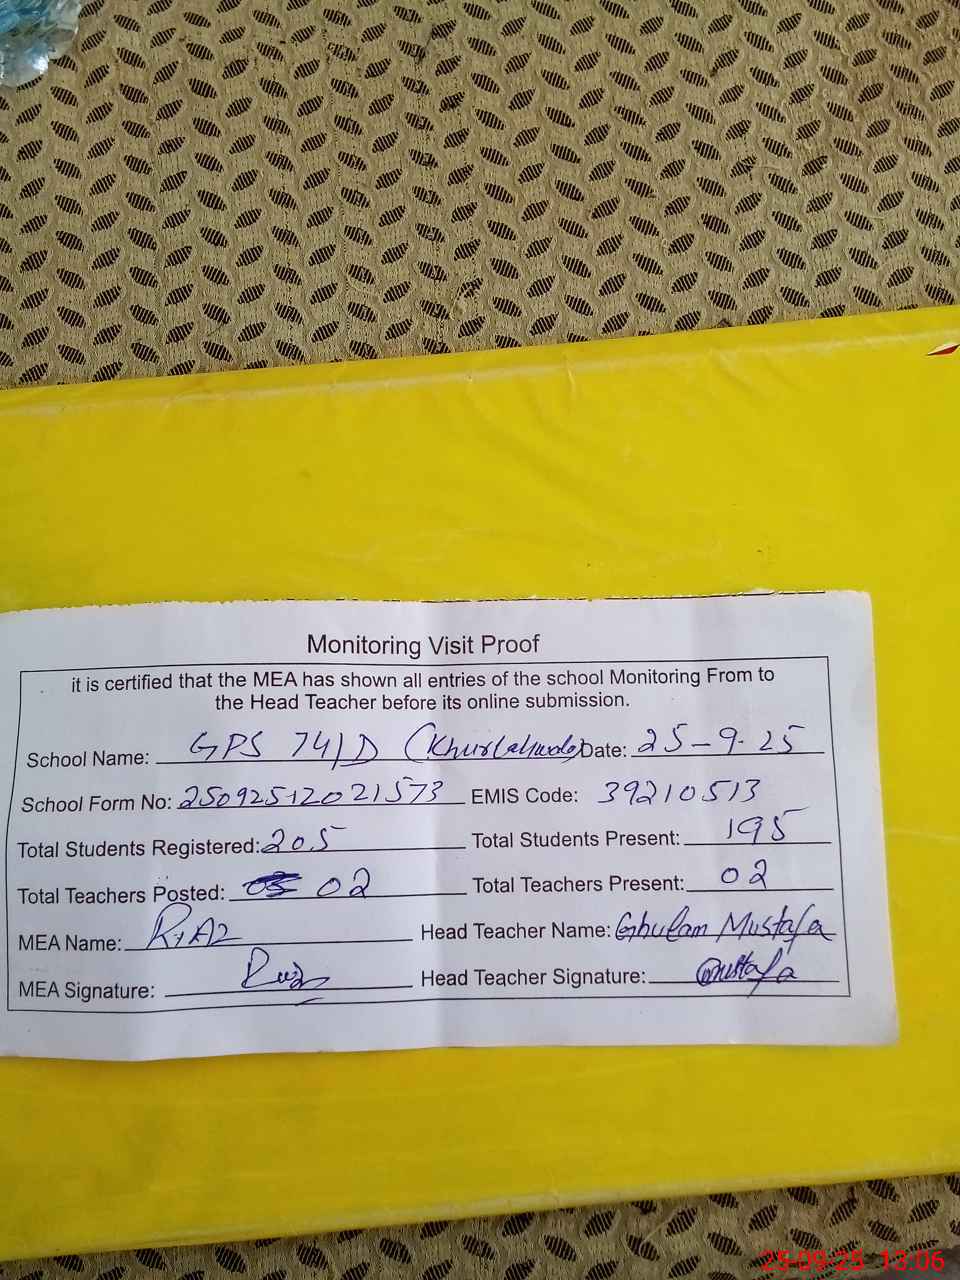 Monitoring Visit Proof
it is certified that the MEA has shown all entries of the school Monitoring From to
the Head Teacher before its online submission.
School Name: GPS 74/D Date: 25-9-25
School Form No: 25092512021573 EMIS Code: 39210513
Total Students Registered: 205 Total Students Present: 195
Total Teachers Posted: 02 Total Teachers Present: 02
MEA Name: RiAz Head Teacher Name: Ghulam Mustafa
MEA Signature: Head Teacher Signature: Mustafa
25-09-25 13:06